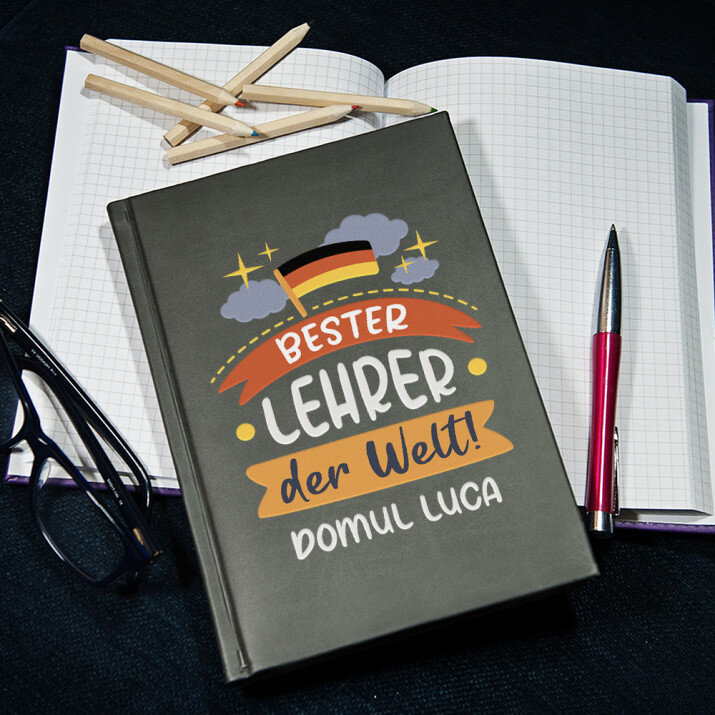 BESTER
LEHRER
der Welt!
DOMUL LUCA